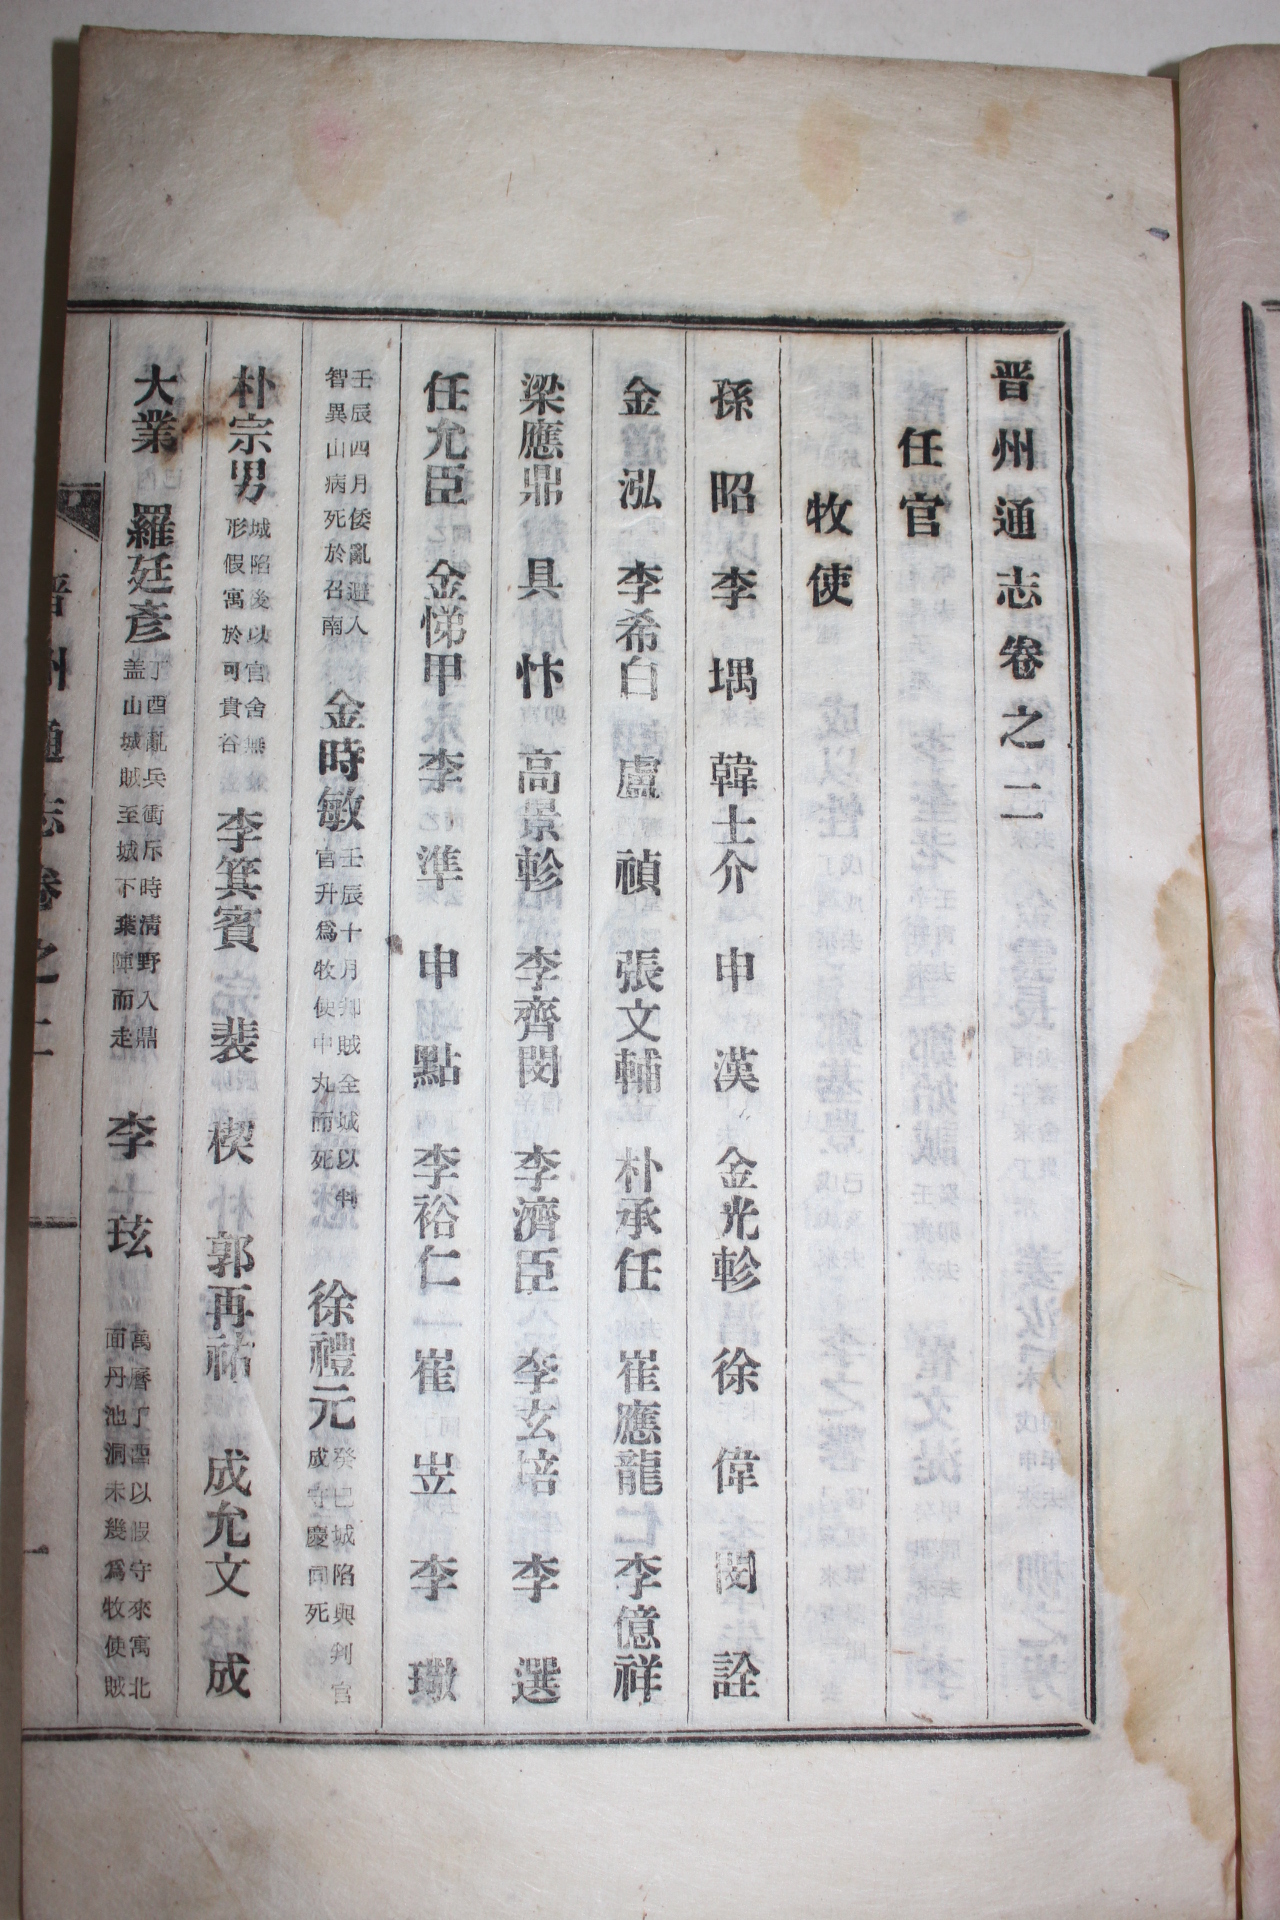 晋州通志卷之二
任官
牧使
孫昭 李堣 韓士介 申漢 金光軫 徐偉 閔詮
金泓 李希白 盧禎 張文輔 朴承任 崔應龍 李億祥
梁應鼎 具忭 高景軫 李齊閔 李濟臣 李玄培 李選
任允臣 金悌甲 李準 申點 李裕仁 崔岦 李璥
壬辰四月倭亂避入
智異山病死於召南
金時敏
壬辰十月却賊全城以判
官升爲牧使中丸而死
徐禮元
癸巳城陷與判官
成守慶同死
朴宗男
城陷後以官舍無
形假寓於可貴谷
李箕賓 裴楔 郭再祐 成允文 成
大業 羅廷彥
丁酉亂兵衝斥時淸野入鼎
盖山城賊至城下葉陣而走
李玹
萬曆丁酉以假守來寓北
面丹池洞未幾爲牧使賊
晋州通志卷之二
一